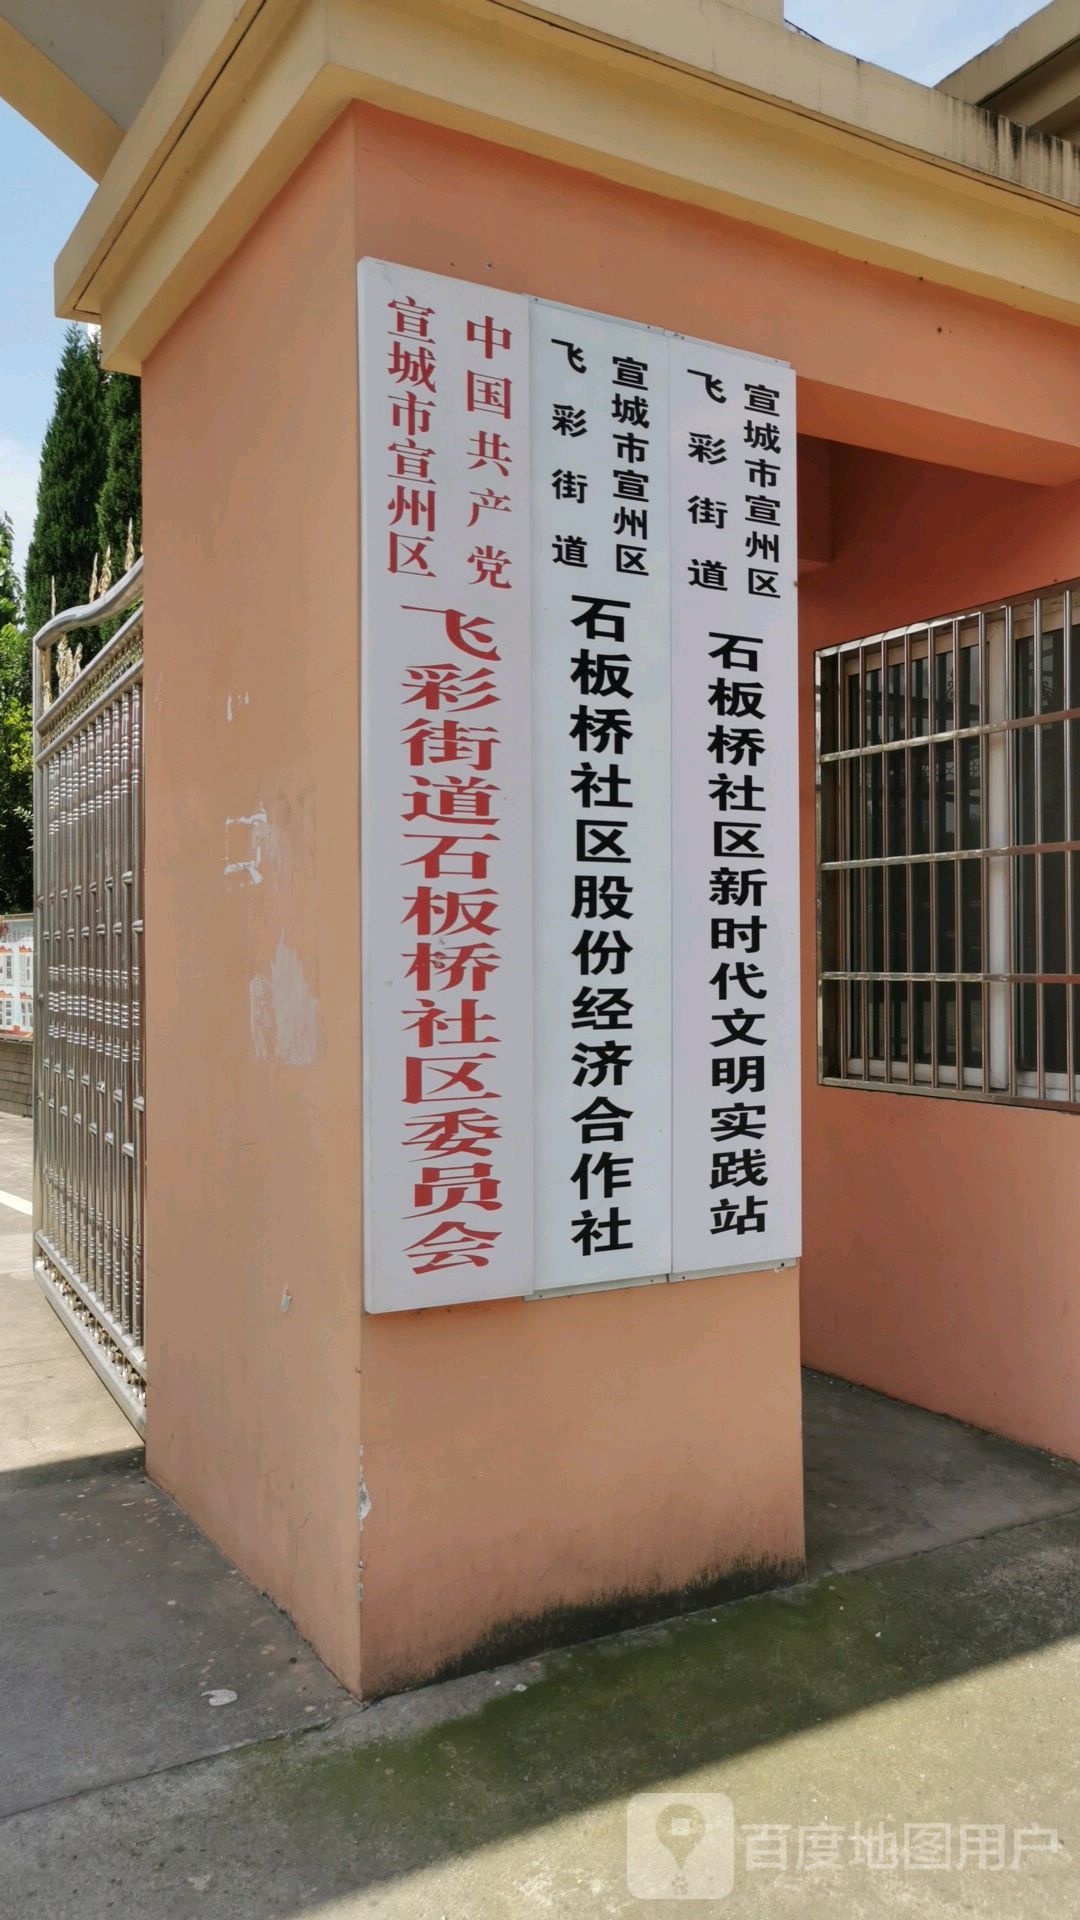 中国共产党
宣城市宣州区
飞彩街道石板桥社区委员会
宣城市宣州区
飞彩街道
石板桥社区股份经济合作社
宣城市宣州区
飞彩街道
石板桥社区新时代文明实践站
百度地图用户